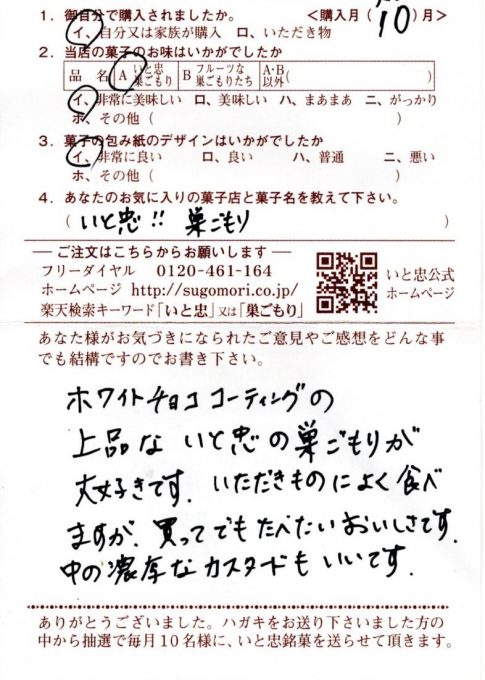 1．御自分で購入されましたか。 ＜購入月（10）月＞
イ、自分又は家族が購入 ロ、いただき物
2．当店の菓子のお味はいかがでしたか
品 名 A いと忠巣ごもり B フルーツな巣ごもりたち A・B以外（ ）
イ、非常に美味しい ロ、美味しい ハ、まあまあ ニ、がっかり
ホ、その他（ ）
3．菓子の包み紙のデザインはいかがでしたか
イ、非常に良い ロ、良い ハ、普通 ニ、悪い
ホ、その他（ ）
4．あなたのお気に入りの菓子店と菓子名を教えて下さい。
（ いと忠!! 巣ごもり ）
― ご注文はこちらからお願いします ―
フリーダイヤル 0120-461-164
ホームページ http://sugomori.co.jp/
楽天検索キーワード「いと忠」又は「巣ごもり」
いと忠公式
ホームページ
あなた様がお気づきになられたご意見やご感想をどんな事
でも結構ですのでお書き下さい。
ホワイトチョココーティングの
上品な いと忠の巣ごもりが
大好きです．いただきものによく食べ
ますが．買ってでもたべたいおいしさです．
中の濃厚なカスタードもいいです．
ありがとうございました。ハガキをお送り下さいました方の
中から抽選で毎月10名様に、いと忠銘菓を送らせて頂きます。